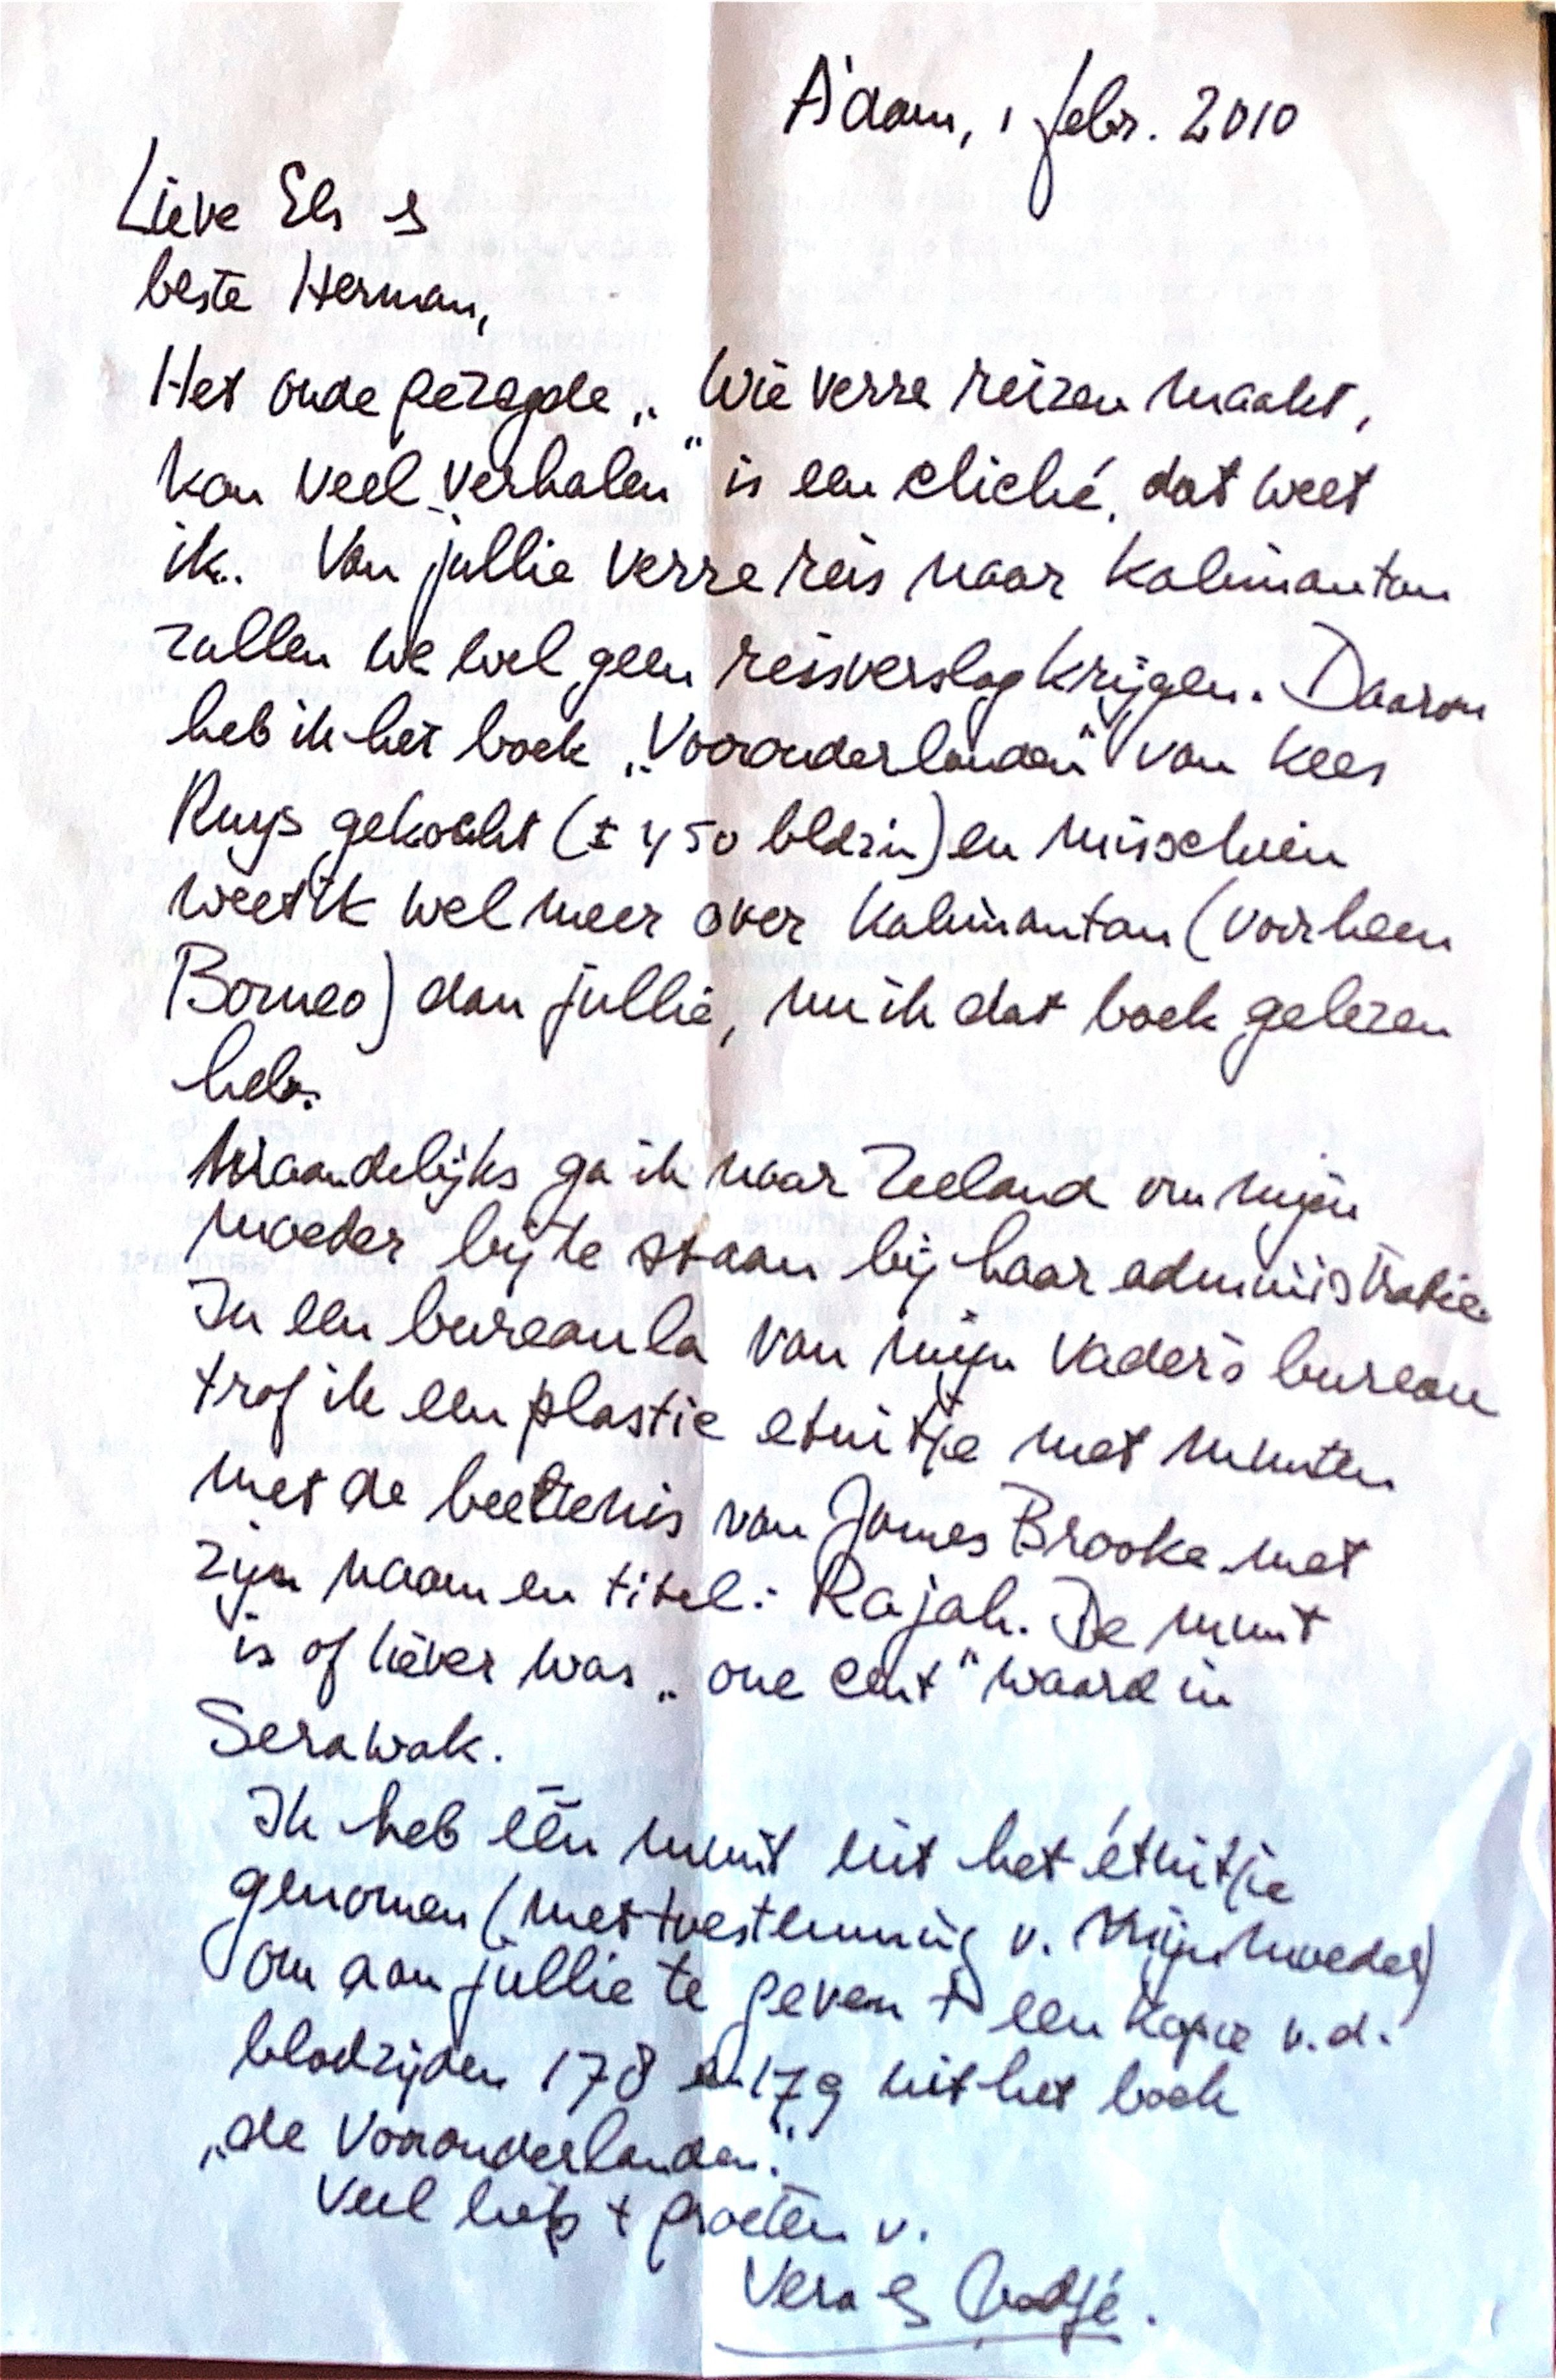 A'dam, 1 febr. 2010
Lieve Els &
beste Herman,
Het oude gezegde „Wie verre reizen maakt,
kan veel verhalen" is een cliché, dat weet
ik. Van jullie verre reis naar Kalimantan
zullen we wel geen reisverslag krijgen. Daarom
heb ik het boek „Vooronderlanden" van Kees
Ruys gekocht (± 450 bldzn) en misschien
weet ik wel meer over Kalimantan (voorheen
Borneo) dan jullie, nu ik dat boek gelezen
heb.
Maandelijks ga ik naar Zeeland om mijn
moeder bij te staan bij haar administratie.
In een bureaula van mijn vader's bureau
trof ik een plastic etuitje met munten
met de beeltenis van James Brooke met
zijn naam en titel: Rajah. De munt
is of liever was „one cent" waard in
Serawak.
Ik heb één munt uit het étuitje
genomen (met toestemming v. mijn moeder)
om aan jullie te geven + een kopie v.d.
bladzijden 178 en 179 uit het boek
„de Vooronderlanden."
Veel liefs + groeten v.
Vera &